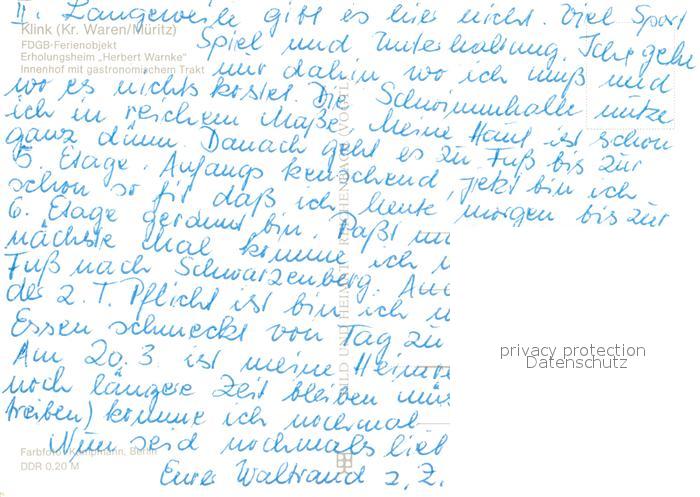 II. Langeweile gibt es hier nicht. Viel Sport
Klink (Kr. Waren/Müritz)
FDGB-Ferienobjekt
Erholungsheim „Herbert Warnke"
Innenhof mit gastronomischem Trakt
Spiel und Unterhaltung. Ich gehe
nur dahin wo ich muß und
wo es nichts kostet. Die Schwimmhalle nutze
ich in reichem Maße, meine Haut ist schon
ganz dünn. Danach geht es zu Fuß bis zur
5. Etage. Anfangs keuschend, jetzt bin ich
schon so fit daß ich heute morgen bis zur
6. Etage gerannt bin. Paßt
nächste mal komme ich
Fuß nach Schwarzenberg.
des 2. T. Pflicht ist bin ich
Essen schmeckt von Tag zu
Am 20.3. ist meine
noch längere Zeit bleiben
treiben) komme ich nochmal
Nun seid nochmals lieb
Eure Waltraud z. Z.
Farbfoto: Kampmann, Berlin
DDR 0,20 M
BILD UND HEIMAT REICHENBACH (VOGTL)
privacy protection
Datenschutz